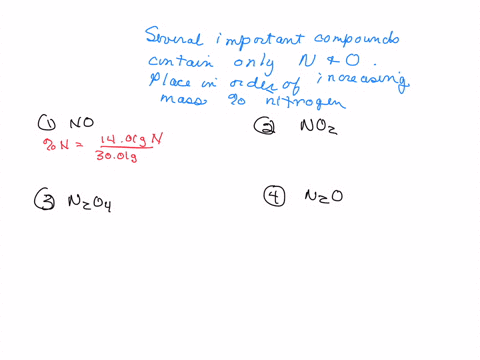 Several important compounds
contain only N & O.
Place in order of increasing
mass % nitrogen
① NO
% N = 14.01g N
30.01g
② NO₂
③ N₂O₄
④ N₂O